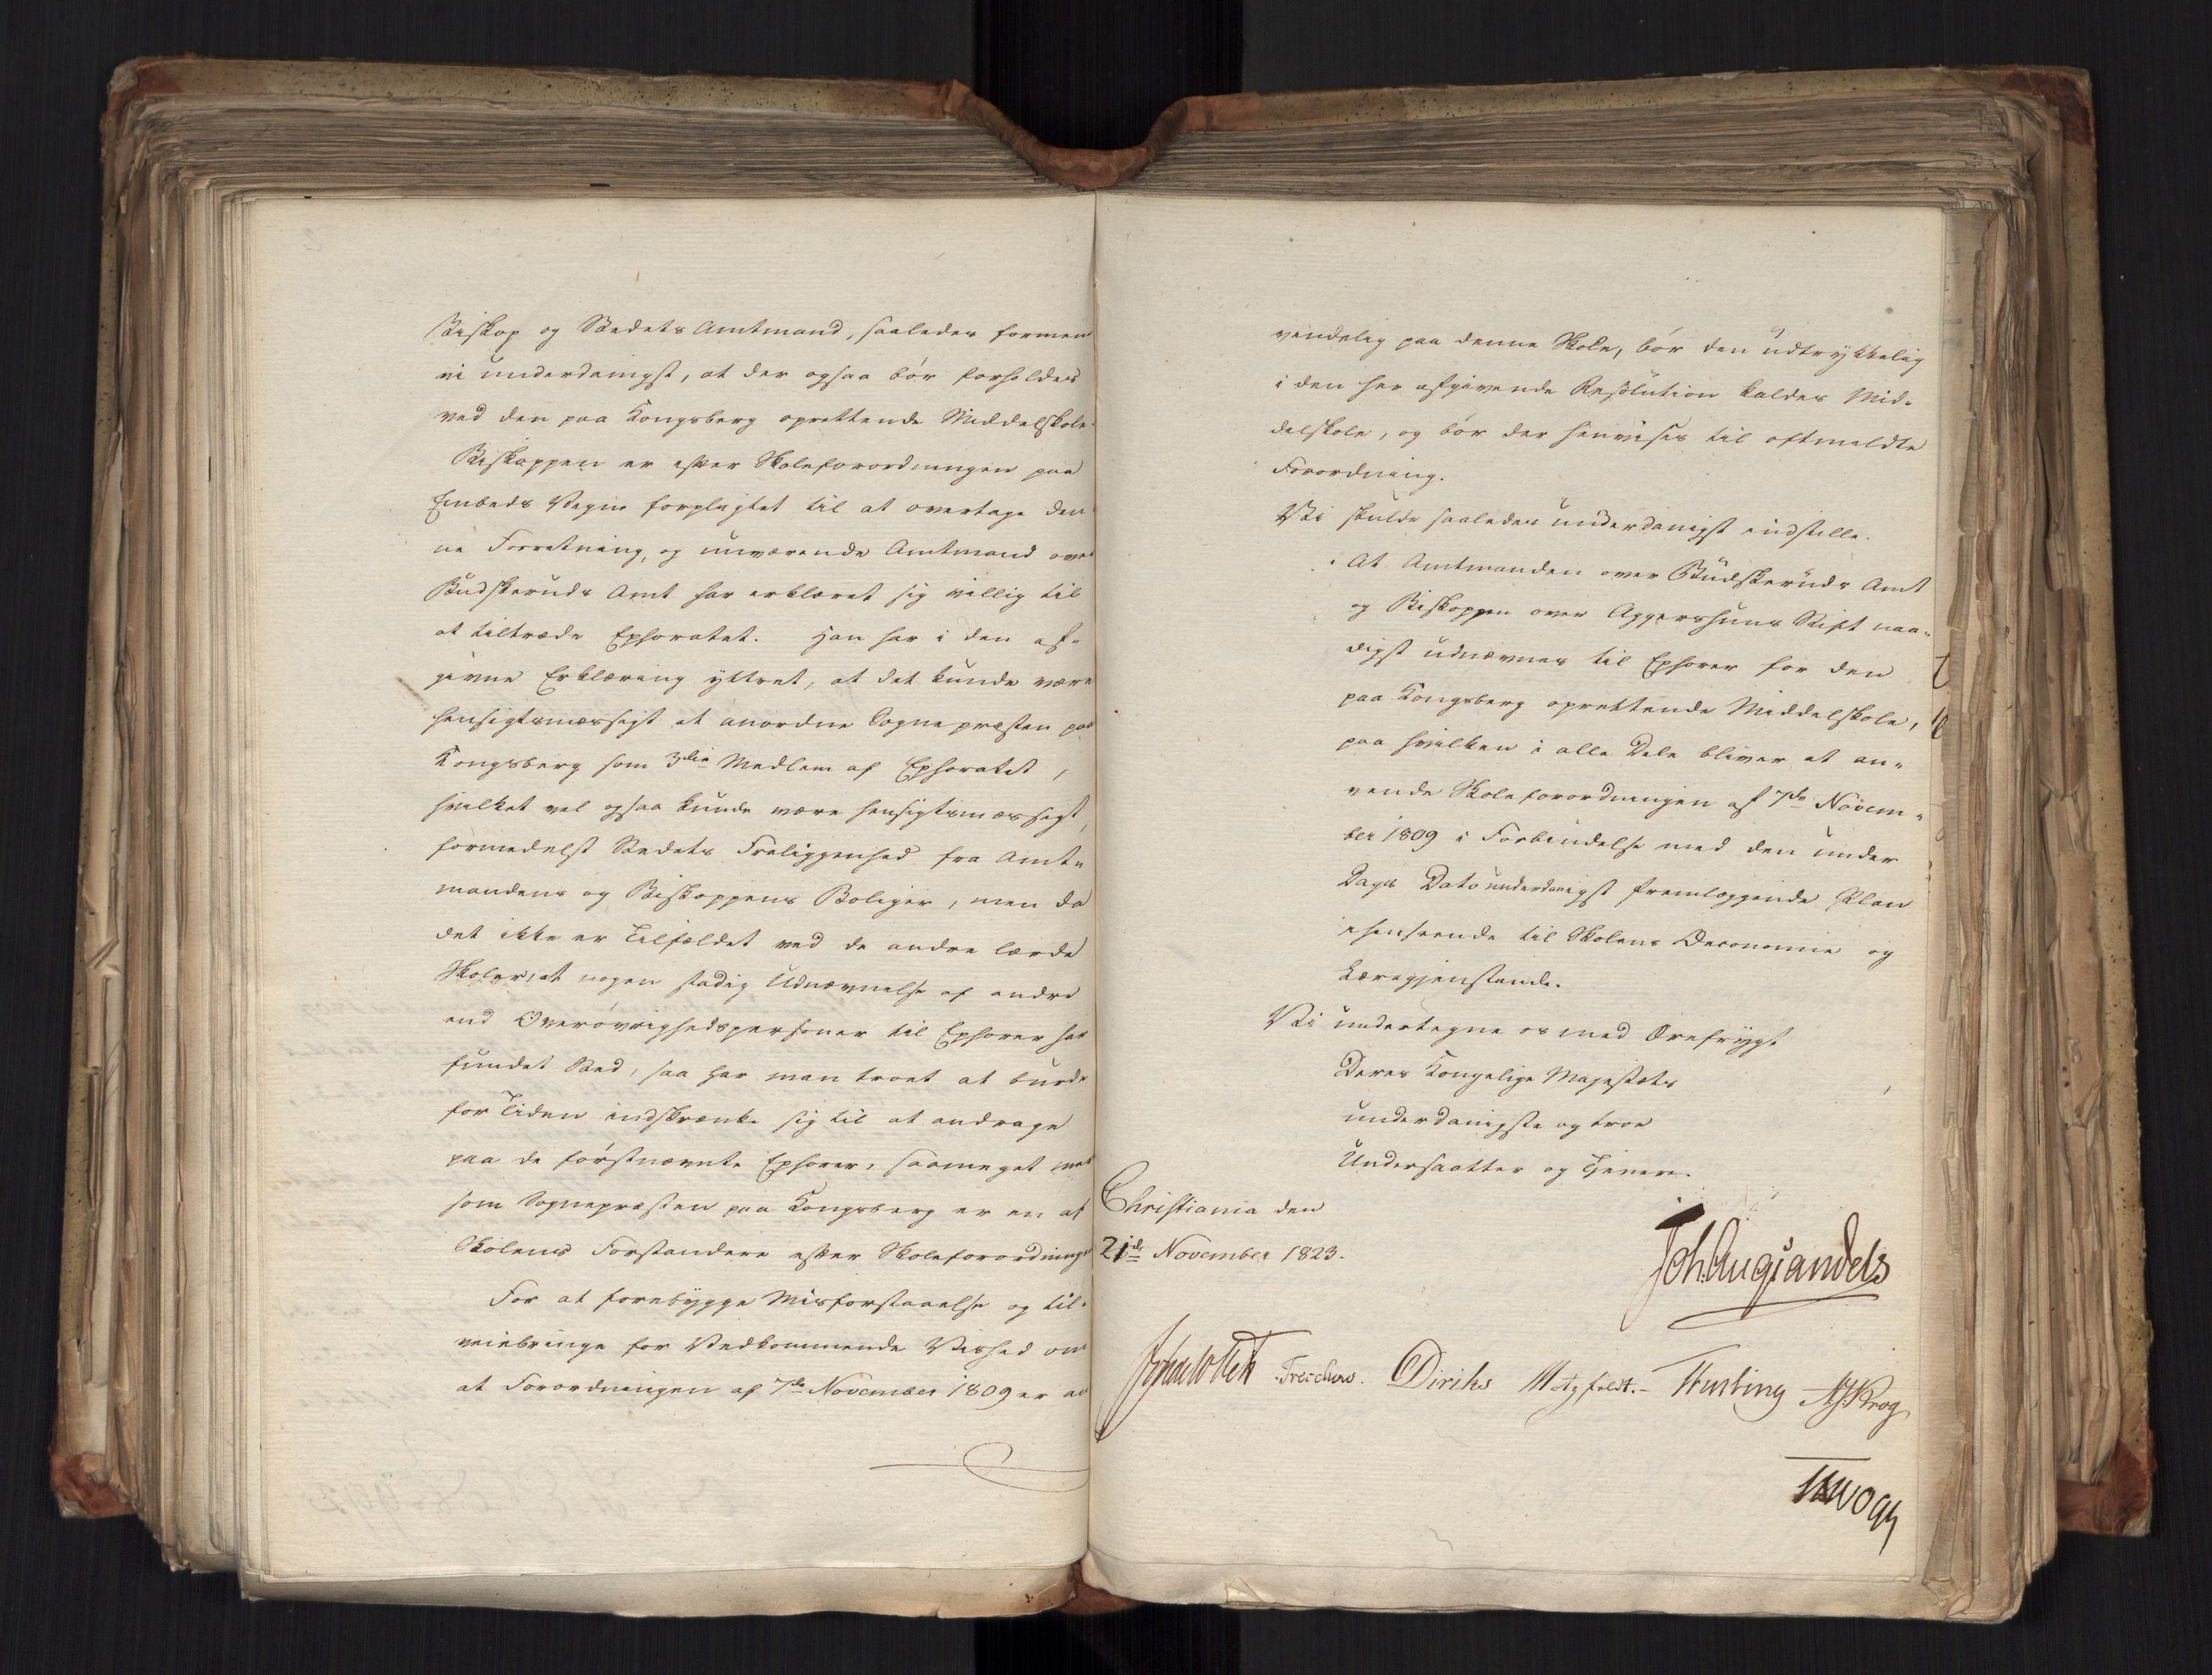 Biskop og Stedets Amtmand, saaledes formene
vi underdanigst, at der ogsaa bör forholdes
ved den paa Kongsberg oprettende Middelskole.
Biskoppen er efter Skoleforordningen paa
Embeds Vegne forpligtet til at overtage den¬
ne Forretning, og nuværende Amtmand over
Budskeruds Amt har erklæret sig villig til
at tiltræde Ephoratet. Han har i den af¬
givne Erklæring yttret, at det kunde være
hensigtsmæssigt at anordne Sognepræsten paa
Kongsberg som 3die Medlem af Ephoratet,
hvilket vel ogsaa kunde være hensigtsmæssigt,
formedelst Stedets Fraliggenhed fra Amt¬
mandens og Biskoppens Boliger, men da
det ikke er Tilfældet ved de andre lærde
Skoler, at nogen stadig Udnævnelse af andre
end Overövrighedspersoner til Ephorer har
fundet Sted, saa har man troet at burde
for Tiden indskrænke sig til at andrage
paa de förstnævnte Ephorer, saameget mere
som Sognepræsten paa Kongsberg er en af
Skolens Forstandere efter Skoleforordningen
For at forebygge Misforstaaelse og til¬
veiebringe for Vedkommende Vished om
at Forordningen af 7de November 1809 er an
vendelig paa denne Skole, bör den udtrykkelig
i den her afgivende Resolution kaldes Mid¬
delskole, og bör der henvises til oftmeldte
Forordning.
Vi skulde saaledes underdanigst indstille:
At Amtmanden over Budskeruds Amt
og Biskoppen over Aggershuus Stift naa¬
digst udnævnes til Ephorer for den
paa Kongsberg oprettende Middelskole,
paa hvilken i alle Dele bliver at an¬
vende Skoleforordningen af 7de Novem¬
ber 1809 i Forbindelse med den under
Dags Dato underdanigst fremlæggende Plan
ihenseende til Skolens Oeconomie og
Læregjenstande.
Vi undertegne os med Ærefrygt
Deres Kongelige Majestæts
underdanigste og troe
Undersaatter og Tjenere.
Christiania den
21de November 1823.
Joh. Aug. Sandels
Jonas Collett Treschow. Diriks Motzfeldt.- Hersleb Krog